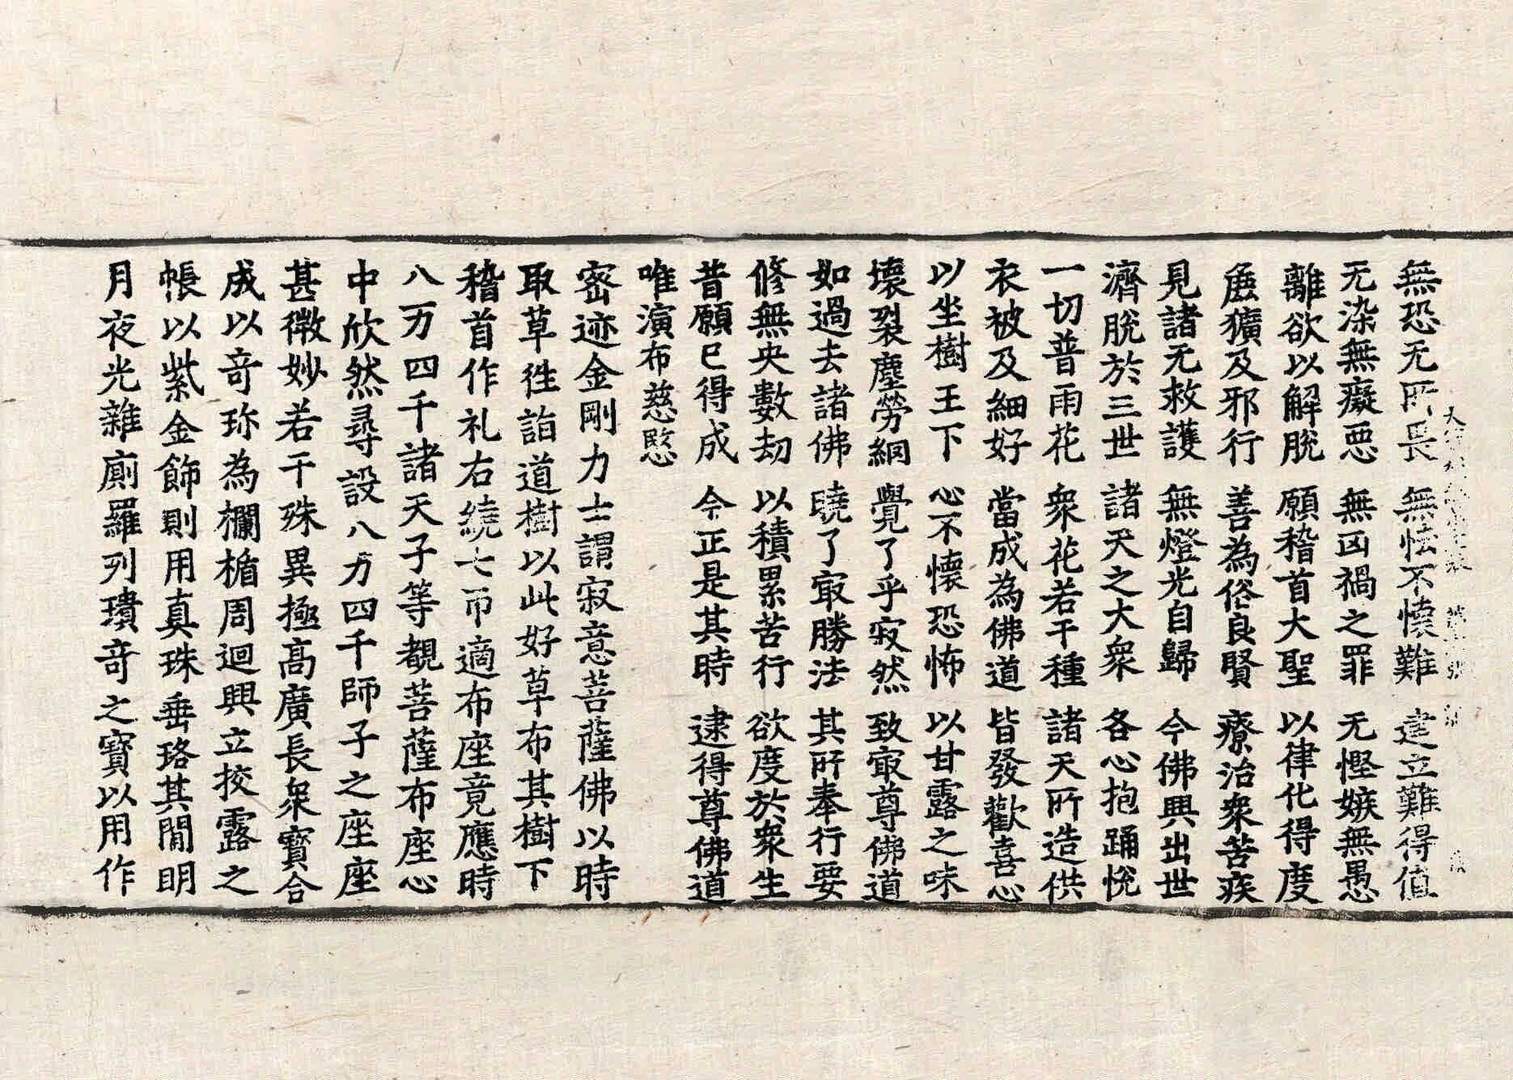 無恐无所畏 無怯不懷難 建立難得值
无染無癡恶 無凶禍之罪 无慳嫉無愚
離欲以解脫 願稽首大聖 以律化得度
麁獷及邪行 善為俗良賢 療治衆苦疾
見諸无救護 無燈光自歸 今佛興出世
濟脫於三世 諸天之大衆 各心抱踊悅
一切普雨花 衆花若干種 諸天所造供
衣被及細好 當成為佛道 皆發歡喜心
以坐樹王下 心不懷恐怖 以甘露之味
壞裂塵勞網 覺了乎寂然 致㝡尊佛道
如過去諸佛 曉了㝡勝法 其所奉行要
修無央數劫 以積累苦行 欲度於衆生
昔願已得成 今正是其時 逮得尊佛道
唯演布慈愍
密迹金剛力士謂寂意菩薩佛以時
取草徃詣道樹以此好草布其樹下
稽首作礼右繞七帀適布座竟應時
八万四千諸天子等覩菩薩布座心
中欣然尋設八万四千師子之座座
甚微妙若干殊異極高廣長衆寶合
成以竒珎為欄楯周迴興立挍露之
帳以紫金飾則用真珠垂珞其閒明
月夜光雜廁羅列瓌竒之寶以用作